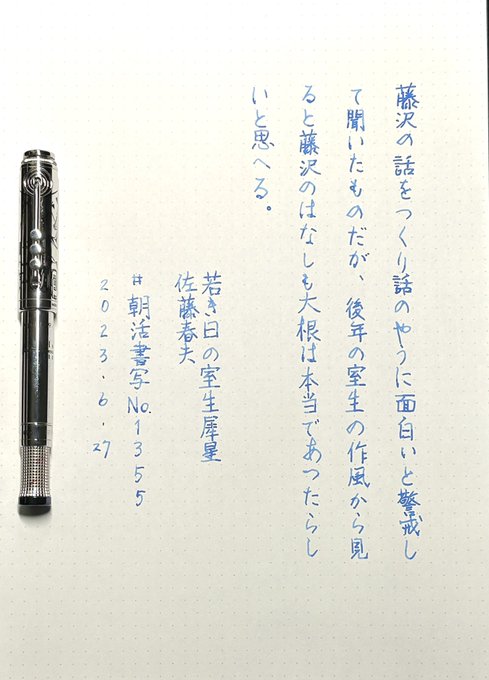 藤沢の話をつくり話のやうに面白いと警戒し
て聞いたものだが、後年の室生の作風から見
ると藤沢のはなしも大根は本当であつたらし
いと思へる。
若き日の室生犀星
佐藤春夫
#朝活書写No.1355
2023.6.27